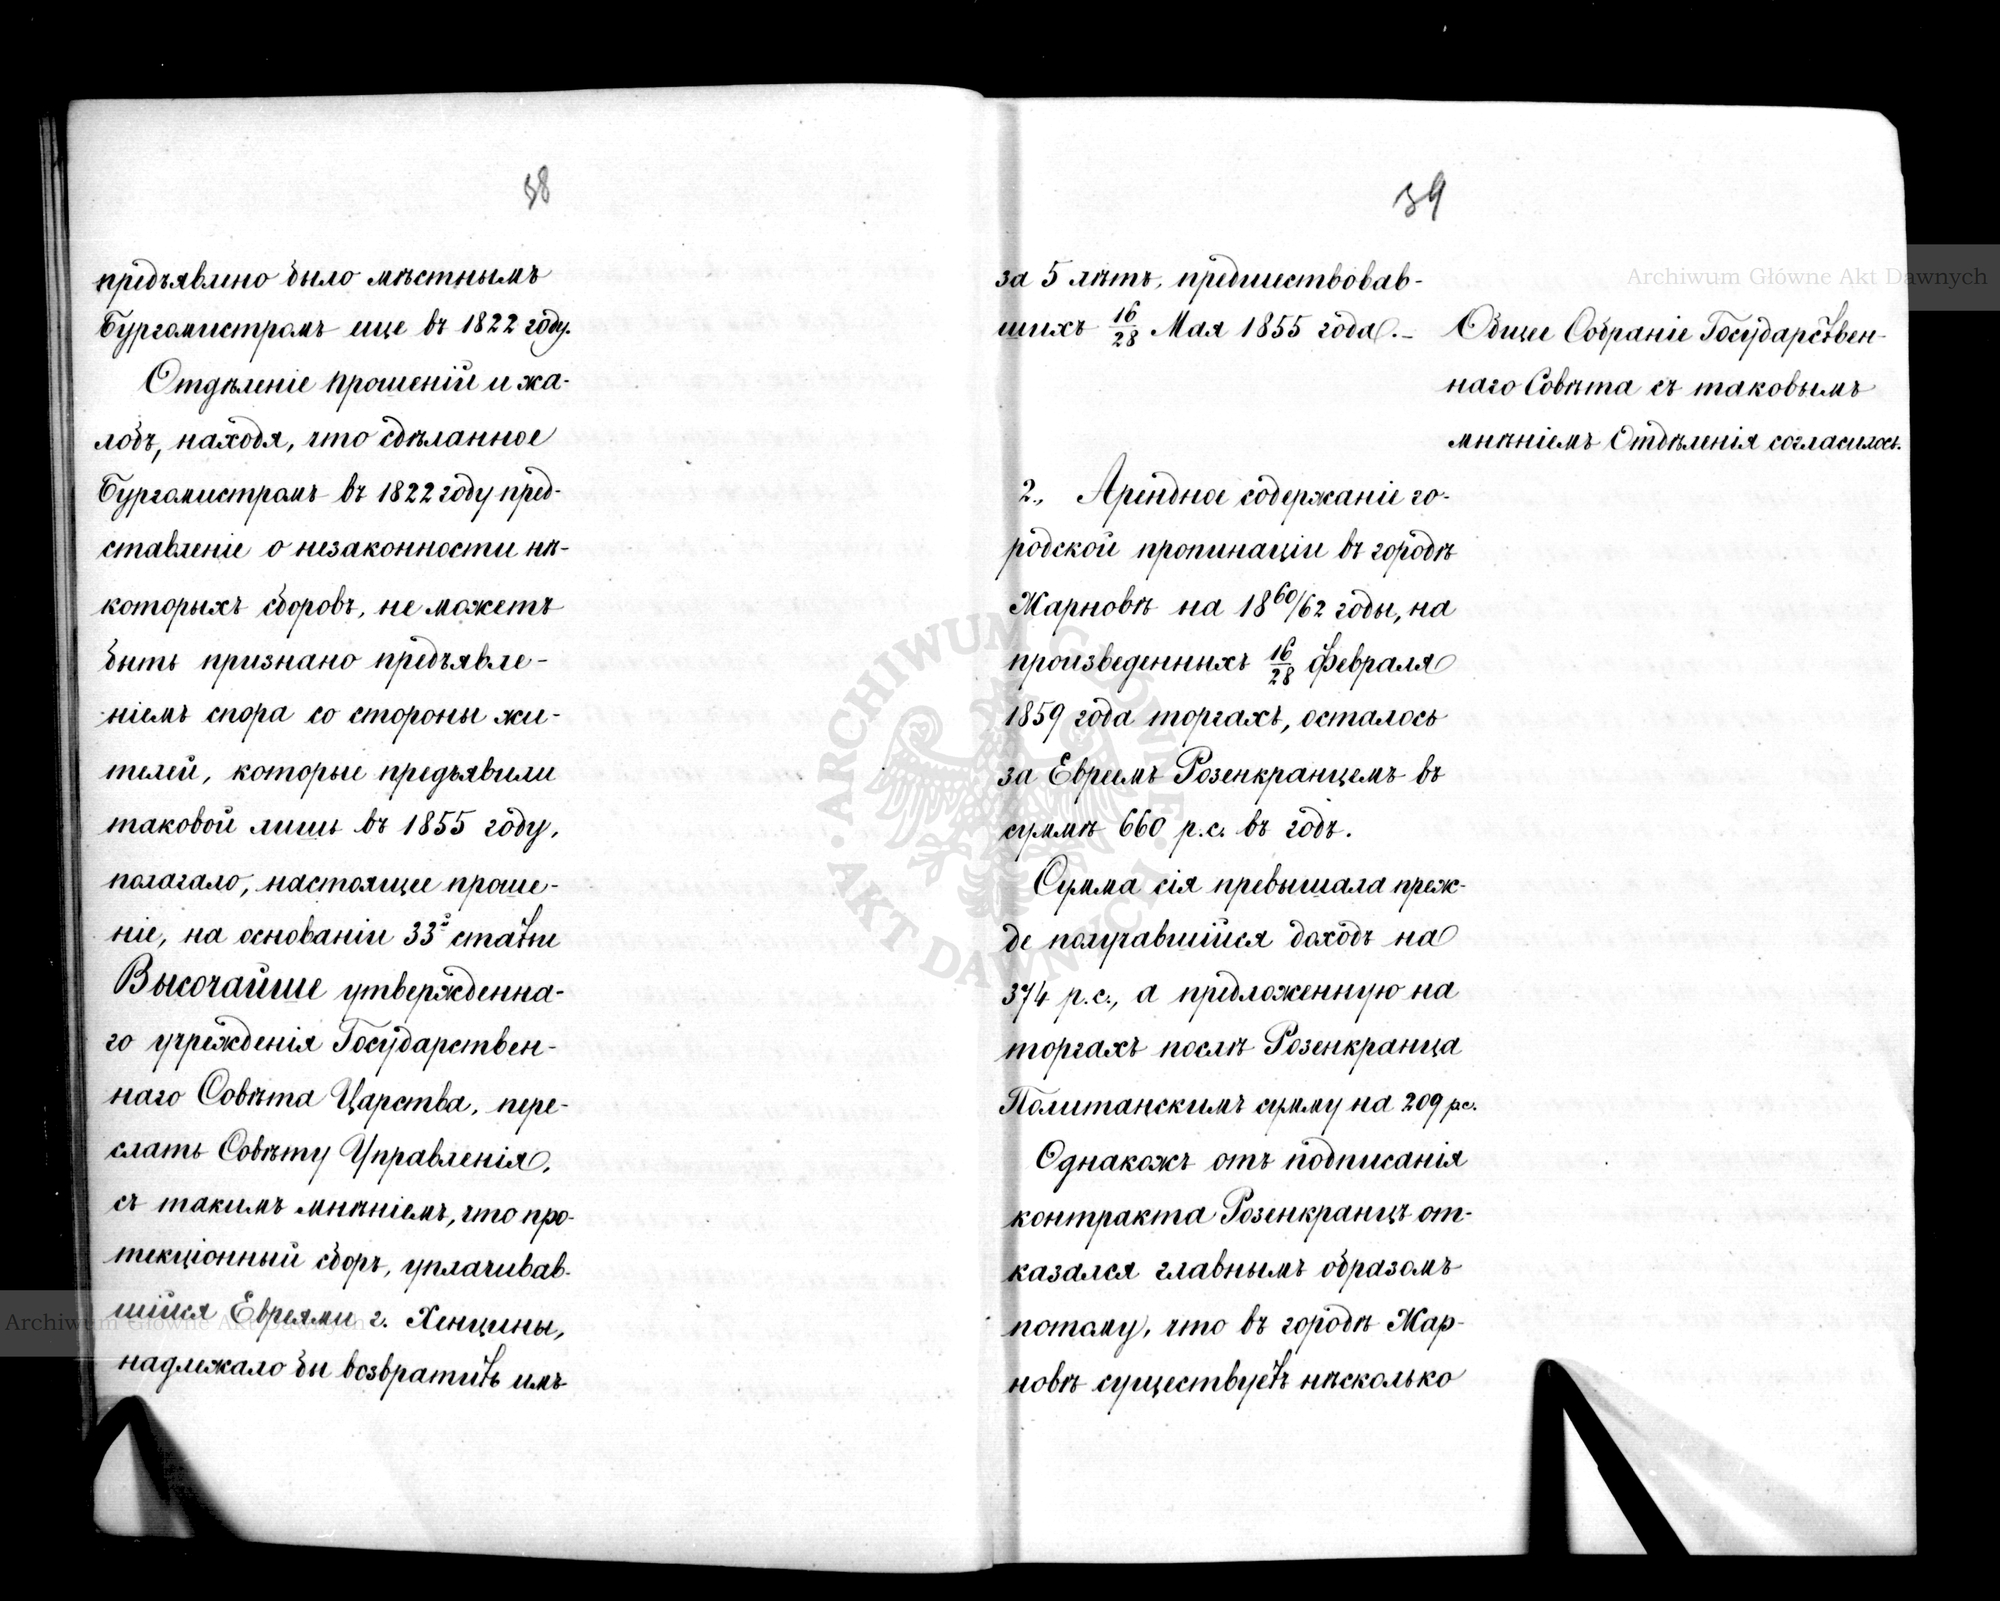 38
предъявлено было мѣстнымъ
Бургомистромъ еще въ 1822 году.
Отдѣленіе прошеній и жа-
лобъ, находя, что сдѣланное
Бургомистромъ въ 1822 году пред-
ставленіе о незаконности нѣ-
которыхъ сборовъ, не можетъ
быть признано предъявле-
ніемъ спора со стороны жи-
телей, которые предъявили
таковой лишь въ 1855 году,
полагало, настоящее проше-
ніе, на основаніи 33й статьи
Высочайше утвержденна-
го учрежденія Государствен-
наго Совѣта Царства, пере-
слать Совѣту Управленія,
съ такимъ мнѣніемъ, что про-
текціонный сборъ, уплачивав-
шійся Евреями г. Хенцины,
надлежало бы возвратить имъ
39
за 5 лѣтъ, предшествовав-
шихъ 16/28 Мая 1855 года.-
Общее Собраніе Государствен-
наго Совѣта съ таковымъ
мнѣніемъ Отдѣленія согласилось.
2., Арендное содержаніе го-
родской пропинаціи въ городѣ
Жарновѣ на 1860/62 годы, на
произведенныхъ 16/28 февраля
1859 года торгахъ, осталось
за Евреемъ Розенкранцемъ въ
суммѣ 660 р.с. въ годъ.
Сумма сія превышала преж-
де получавшійся доходъ на
374 р.с., а предложенную на
торгахъ послѣ Розенкранца
Политанскимъ сумму на 209 рс.
Однакожъ отъ подписанія
контракта Розенкранцъ от-
казался главнымъ образомъ
потому, что въ городѣ Жар-
новѣ существуетъ нѣсколько
Archiwum Główne Akt Dawnych
Archiwum Główne Akt Dawnych
ARCHIWUM GŁÓWNE · AKT DAWNYCH ·